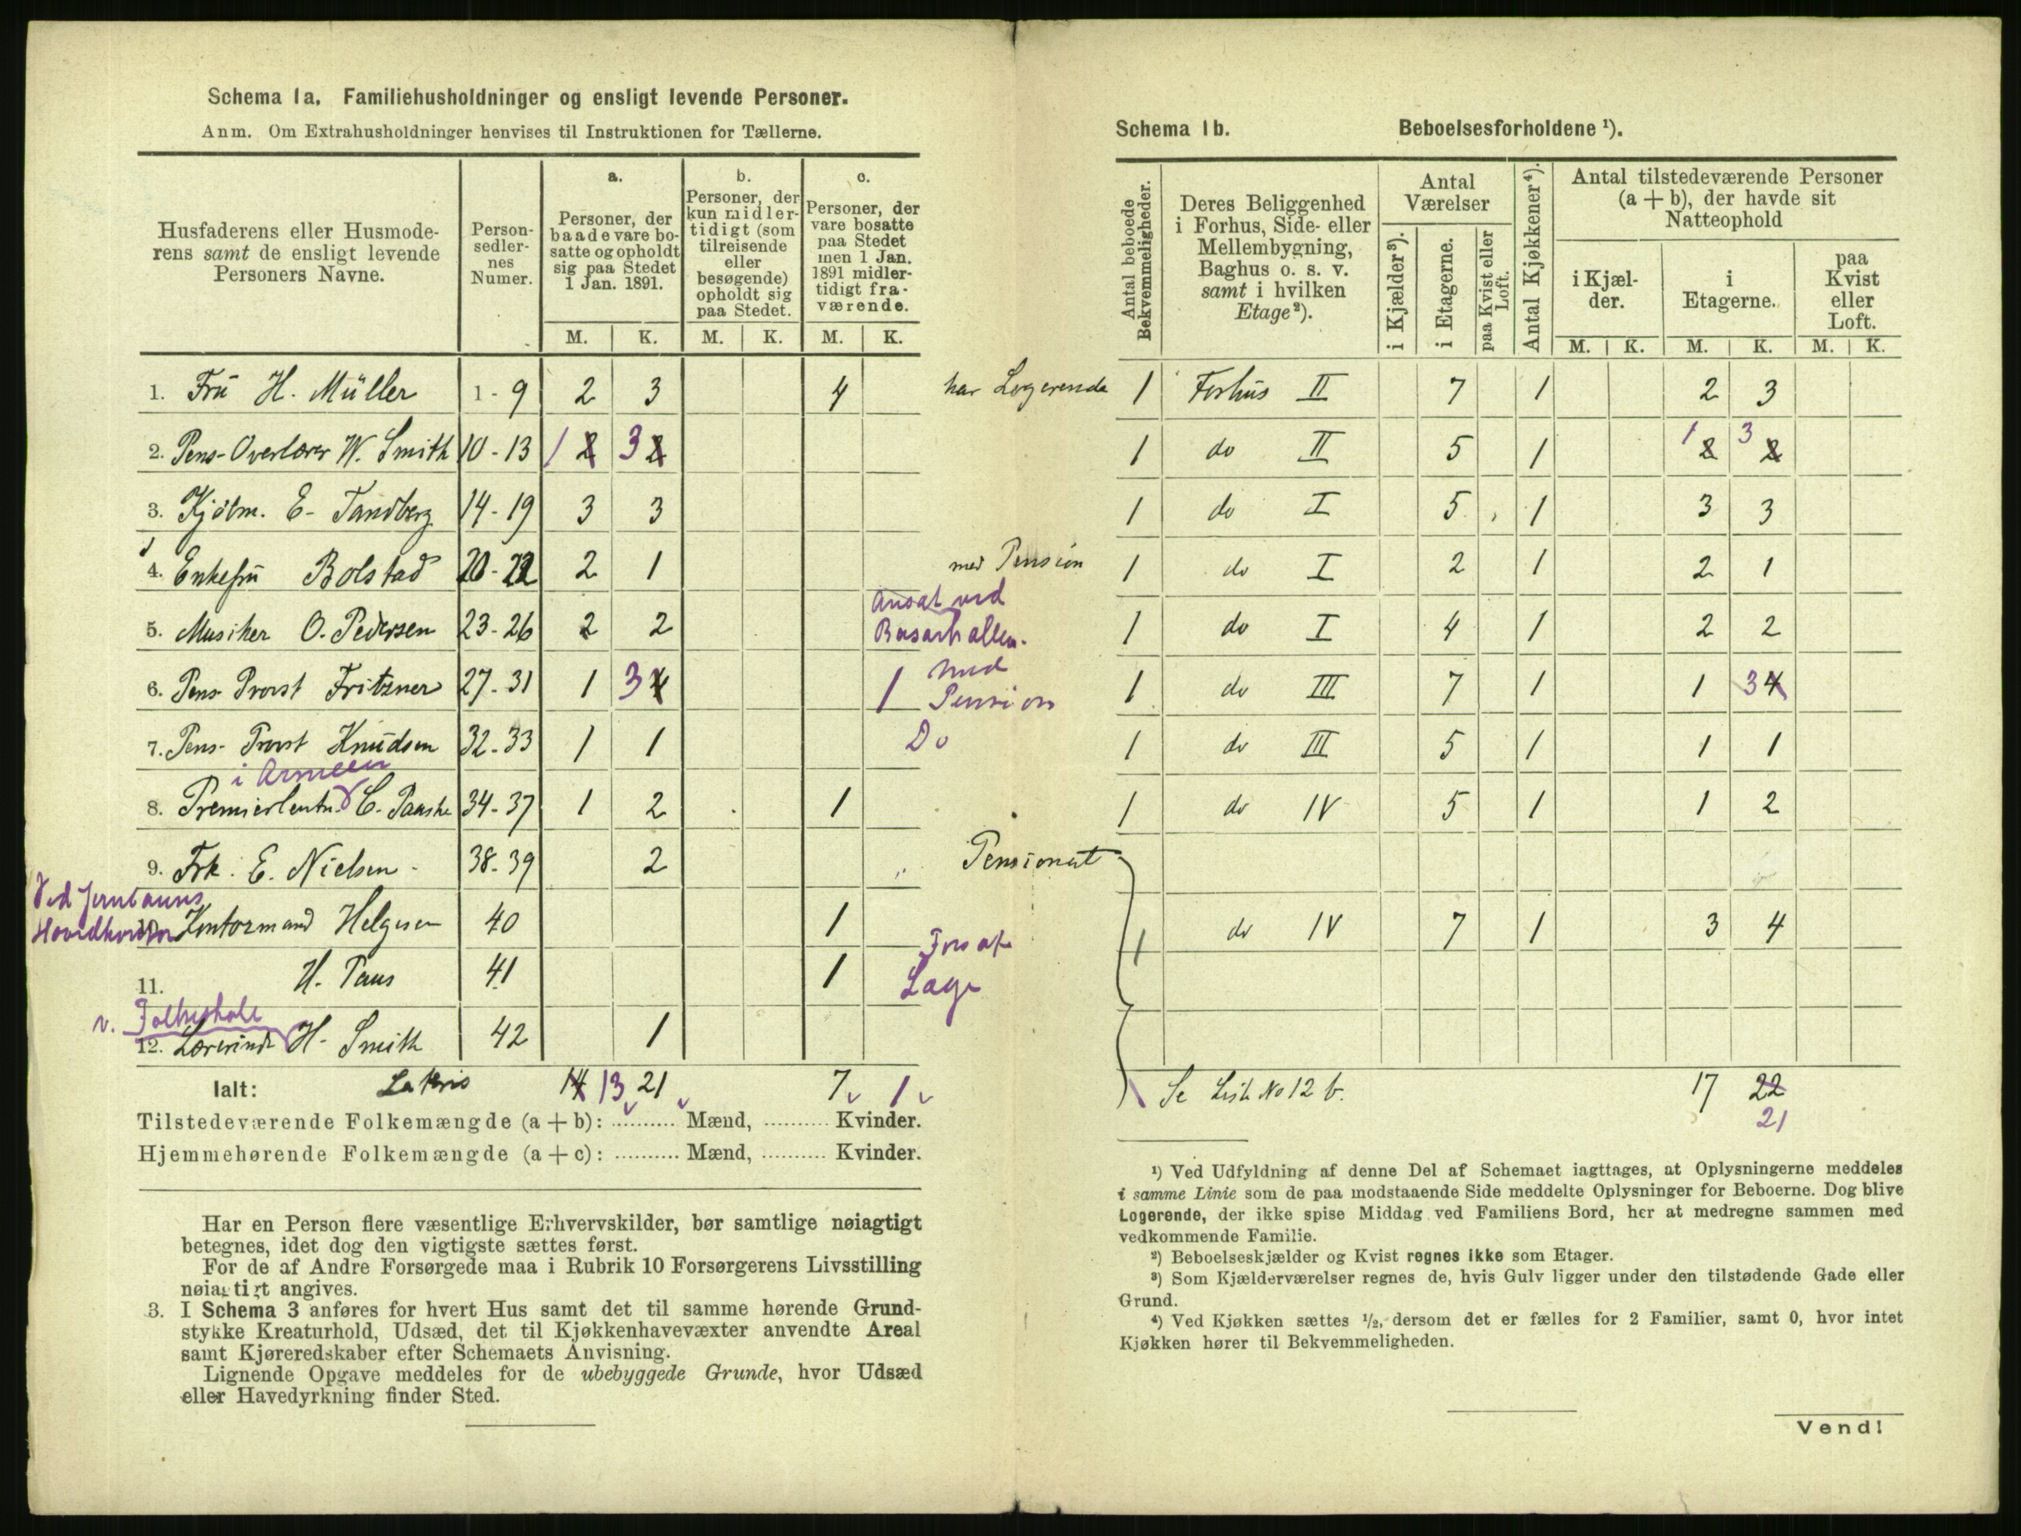 Schema 1a. Familiehusholdninger og ensligt levende Personer.
Anm. Om Extrahusholdninger henvises til Instruktionen for Tællerne.
Husfaderens eller Husmode-
rens samt de ensligt levende
Personers Navne.
Person-
sedler-
nes
Numer.
a.
Personer, der
baade vare bo-
satte og opholdt
sig paa Stedet
1 Jan. 1891.
b.
Personer, der
kun midler-
tidigt (som
tilreisende
eller
besøgende)
opholdt sig
paa Stedet.
c.
Personer, der
vare bosatte
paa Stedet
men 1 Jan.
1891 midler-
tidigt fra-
værende.
M. K. M. K. M. K.
1. Fru H. Müller 1 - 9 2 3 4
2. Pens- Overlærer W. Smith 10 - 13 1 2 3 2
3. Kjøbm. E- Tandberg 14 - 19 3 3
4. Enkefru Bolstad 20 - 22 2 1
5. Musiker O. Pedersen 23 - 26 2 2 Ansat ved
Basarhallen.
6. Pens- Provst Fritzner 27 - 31 1 3 4 1 med
Pension
7. Pens- Provst Knudsen 32 - 33 1 1 Do
i Armeen
8. Premierleutn. C. Paaske 34 - 37 1 2 1
9. Frk. E. Nielsen - 38 - 39 2
Ved Jernbanens
Hovedkontor
10. Kontormand Helgesen 40 1
11. H. Paus 41 1 Fors af
Læge
v. Folkeskole
12. Lærerinde H. Smith 42 1
Ialt: 14 13 21 7 1
Tilstedeværende Folkemængde (a + b): .......... Mænd, .......... Kvinder.
Hjemmehørende Folkemængde (a + c): .......... Mænd, .......... Kvinder.
Har en Person flere væsentlige Erhvervskilder, bør samtlige nøiagtigt
betegnes, idet dog den vigtigste sættes først.
For de af Andre Forsørgede maa i Rubrik 10 Forsørgerens Livsstilling
nøiagtigt angives.
3. I Schema 3 anføres for hvert Hus samt det til samme hørende Grund-
stykke Kreaturhold, Udsæd, det til Kjøkkenhavevæxter anvendte Areal
samt Kjøreredskaber efter Schemaets Anvisning.
Lignende Opgave meddeles for de ubebyggede Grunde, hvor Udsæd
eller Havedyrkning finder Sted.
Schema 1b. Beboelsesforholdene ¹).
Antal beboede
Bekvemmeligheder.
Deres Beliggenhed
i Forhus, Side- eller
Mellembygning,
Baghus o. s. v.
samt i hvilken
Etage²).
Antal
Værelser
i Kjælder³).
i Etagerne.
paa Kvist eller
Loft.
Antal Kjøkkener⁴).
Antal tilstedeværende Personer
(a + b), der havde sit
Natteophold
i Kjæl-
der.
i
Etagerne.
paa
Kvist
eller
Loft.
M. K. M. K. M. K.
har Logerende 1 Forhus II 7 1 2 3
1 do II 5 1 1 2 3 2
1 do I 5 1 3 3
med Pension 1 do I 2 1 2 1
1 do I 4 1 2 2
1 do III 7 1 1 3 4
1 do III 5 1 1 1
1 do IV 5 1 1 2
Pensionat
1 do IV 7 1 3 4
Se Liste No 12 b. 17 22
21
¹) Ved Udfyldning af denne Del af Schemaet iagttages, at Oplysningerne meddeles
i samme Linie som de paa modstaaende Side meddelte Oplysninger for Beboerne. Dog blive
Logerende, der ikke spise Middag ved Familiens Bord, her at medregne sammen med
vedkommende Familie.
²) Beboelseskjælder og Kvist regnes ikke som Etager.
³) Som Kjælderværelser regnes de, hvis Gulv ligger under den tilstødende Gade eller
Grund.
⁴) Ved Kjøkken sættes ½, dersom det er fælles for 2 Familier, samt 0, hvor intet
Kjøkken hører til Bekvemmeligheden.
Vend!